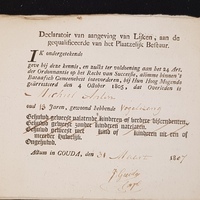 Declaratoir van aangeving van Lijken, aan de
gequalificeerde van het Plaatselijk Bestuur.
Ik ondergeteekende
geve bij deze kennis, en zulks ter voldoening aan het 24 Art.
der Ordonnantie op het Recht van Successie, alomme binnen 't
Bataafsch Gemeenebest intevoeren, bij Hun Hoog Mogende
gearresteerd den 4 October 1805, dat Overleden is
oud 18 Jaren, gewoond hebbende
Gehuwd geweest nalatende kinderen of verdere descendenten.
Gehuwd geweest zonder kinderen natelaten.
Gehuwd geweest met kind of kinderen uit een of
meerder Huwelijk.
Ongehuwd.
Actum in GOUDA, den 31 Maart 1807